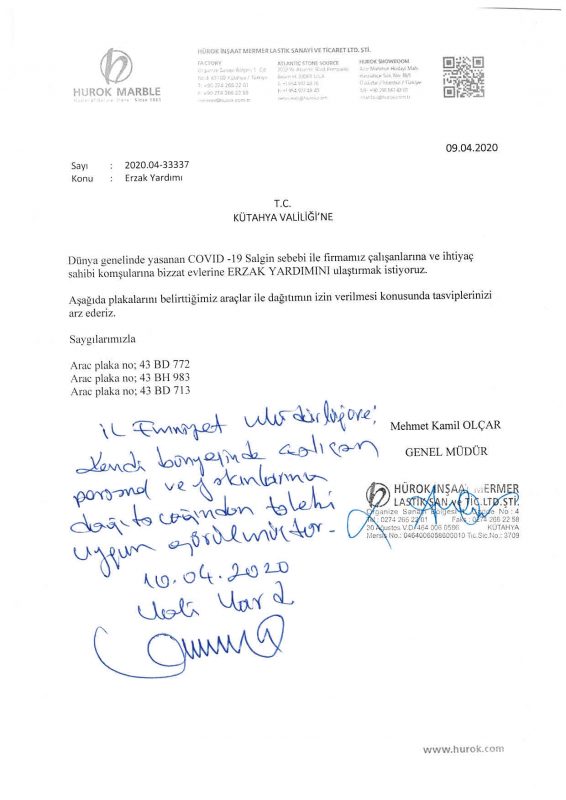 HUROK MARBLE
HUROK İNŞAAT MERMER LASTİK SANAYİ VE TİCARET LTD. ŞTİ.
FACTORY
ATLANTIC STONE SOURCE
HUROK SHOWROOM
09.04.2020
Sayı : 2020.04-33337
Konu : Erzak Yardımı
T.C.
KÜTAHYA VALİLİĞİ'NE
Dünya genelinde yasanan COVID -19 Salgin sebebi ile firmamız çalışanlarına ve ihtiyaç
sahibi komşularına bizzat evlerine ERZAK YARDIMINI ulaştırmak istiyoruz.
Aşağıda plakalarını belirttiğimiz araçlar ile dağıtımın izin verilmesi konusunda tasviplerinizi
arz ederiz.
Saygılarımızla
Arac plaka no; 43 BD 772
Arac plaka no; 43 BH 983
Arac plaka no; 43 BD 713
İl Emniyet Müdürlüğüne;
Kendi bünyesinde çalışan
personel ve yakınlarına
dağıtacağından talebi
uygun görülmüştür.
10.04.2020
Vali Yard.
Mehmet Kamil OLÇAR
GENEL MÜDÜR
HÜROK İNŞAAT MERMER
LASTİK SAN. ve TİC.LTD.ŞTİ.
Organize Sanayi Bölgesi No : 4
Tel : 0274 266 22 01 Faks : 0274 266 22 58
KÜTAHYA
Tic.Sic.No.: 3709
www.hurok.com